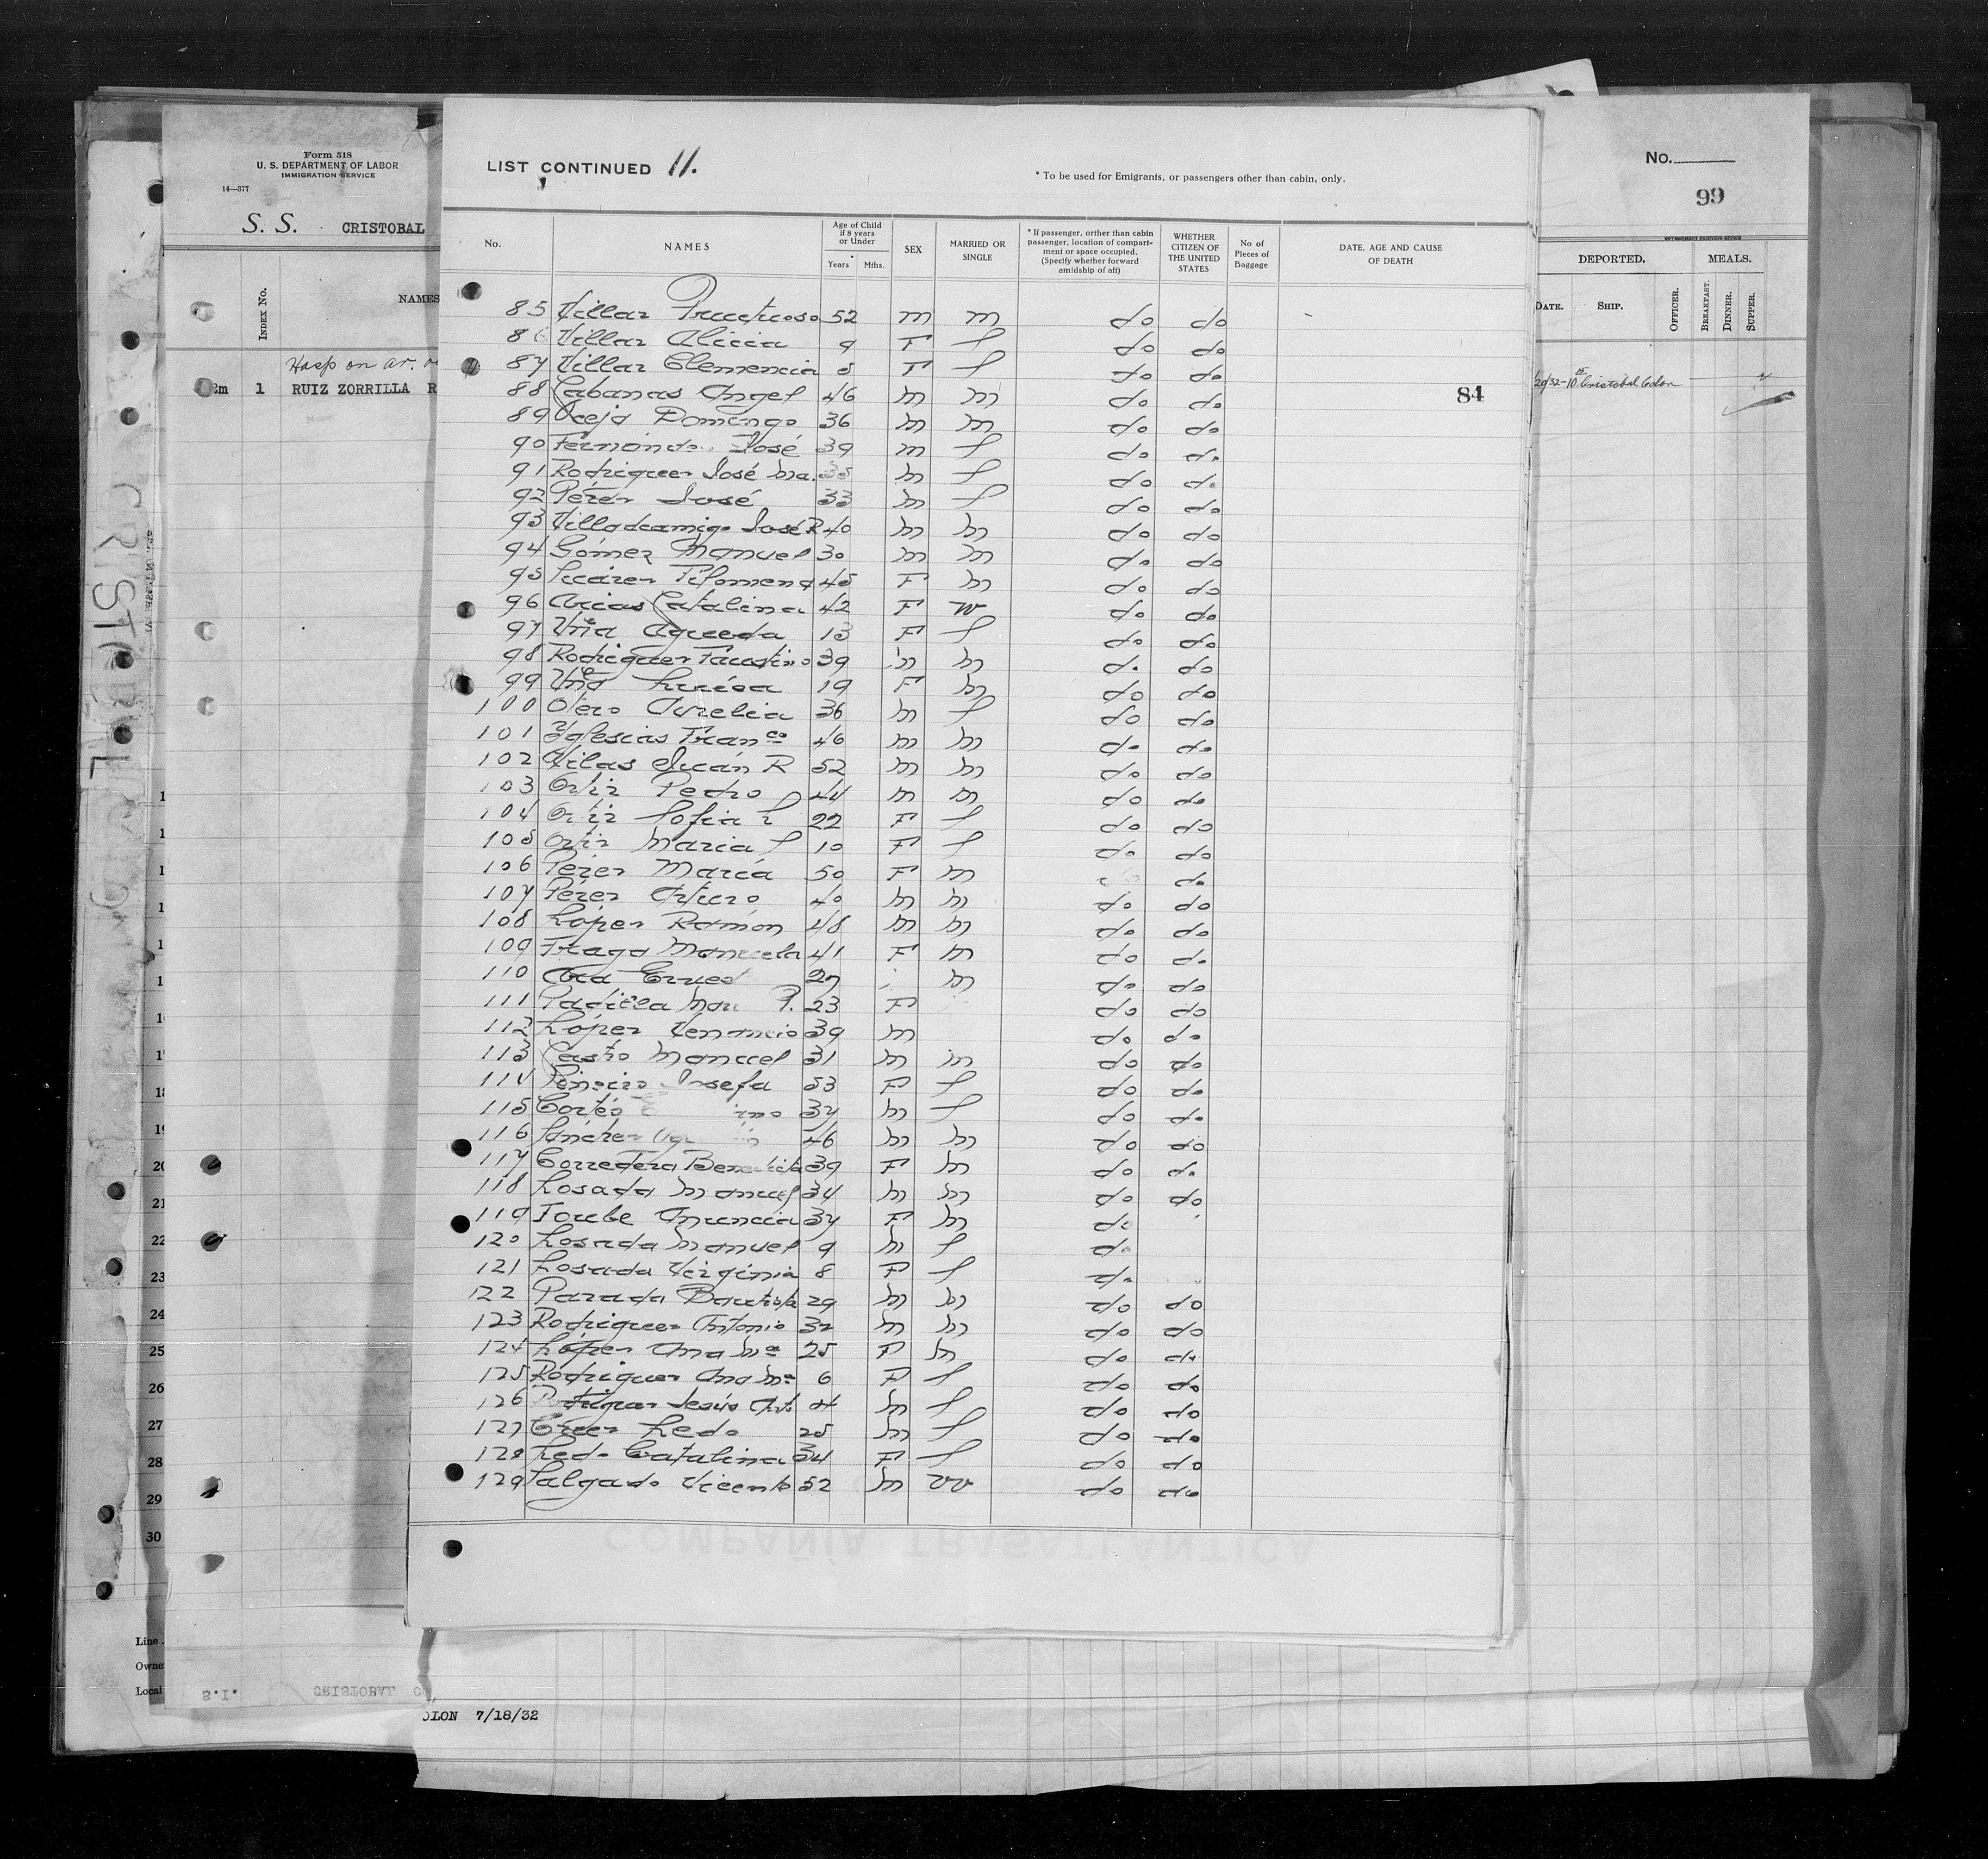 Form 518
U. S. DEPARTMENT OF LABOR
IMMIGRATION SERVICE
14—377
S. S. CRISTOBAL
INDEX No.
NAMES
Hosp on ar.
1 RUIZ ZORRILLA R
LIST CONTINUED 11.
* To be used for Emigrants, or passengers other than cabin, only.
No.
NAMES
Age of Child if 8 years or Under
Years Mths.
SEX
MARRIED OR SINGLE
* If passenger, orther than cabin passenger, location of compartment or space occupied. (Specify whether forward amidship of aft)
WHETHER CITIZEN OF THE UNITED STATES
No of Pieces of Baggage
DATE, AGE AND CAUSE OF DEATH
85 Villar Fructuoso 52 m m do do
86 Villar Alicia 9 F S do do
87 Villar Clemencia 5 F S do do
88 Cabanas Angel 46 m m do do
89 Oceja Domingo 36 m m do do
90 José 39 m S do do
91 Rodriguez José Ma. m S do do
92 Pérez José 33 m S do do
93 Villadeamigo José R 40 m m do do
94 Gómez Manuel 30 m m do do
95 Suárez Filomena 45 F m do do
96 Arias Catalina 42 F W do do
97 Agueda 13 F S do do
98 Rodriguez Faustino 39 m m do do
99 Luisa 19 F m do do
100 Otero Aurelia 36 m S do do
101 Yglesias Franco 46 m m do do
102 Vilas Juán R 52 m m do do
103 Ortiz Pedro 44 m m do do
104 Ortiz Sofia L 22 F S do do
105 Ortiz Maria S 10 F S do do
106 Pérez María 50 F m do
107 Pérez Arturo 40 m m do do
108 López Ramón 48 m m do do
109 Fraga Manuela 41 F m do do
110 27 m do do
111 Padilla P. 23 F do do
112 López Venancio 39 m do do
113 Castro Manuel 31 m m do do
114 Pineiro Josefa 53 F S do do
115 Cortés 37 m S do do
116 Sánchez 46 m m do do
117 Corredera Benedicta 39 F m do do
118 Losada Manuel 34 m m do do
119 Toube Anuncia 37 F m do
120 Losada Manuel 9 m S do
121 Losada Virginia 8 F S do
122 Parada Bautista 29 m m do do
123 Rodriguez Antonio 32 m m do do
124 López Ana Ma 25 F m do do
125 Rodriguez Ana Ma 6 F S do do
126 Rodriguez Jesús Anto 4 m S do do
127 Ledo 25 m S do do
128 Ledo Catalina 34 F S do do
129 Salgado Vicente 52 m W do do
84
No.
99
DEPORTED.
MEALS.
DATE.
SHIP.
OFFICER.
BREAKFAST.
DINNER.
SUPPER.
Cristobal Colon
CRISTOBAL
20
21
22
23
24
25
26
27
28
29
30
Line
Owne
Local
S.I. CRISTOBAL C
COMPAÑIA TRASATLANTICA
OLON 7/18/32